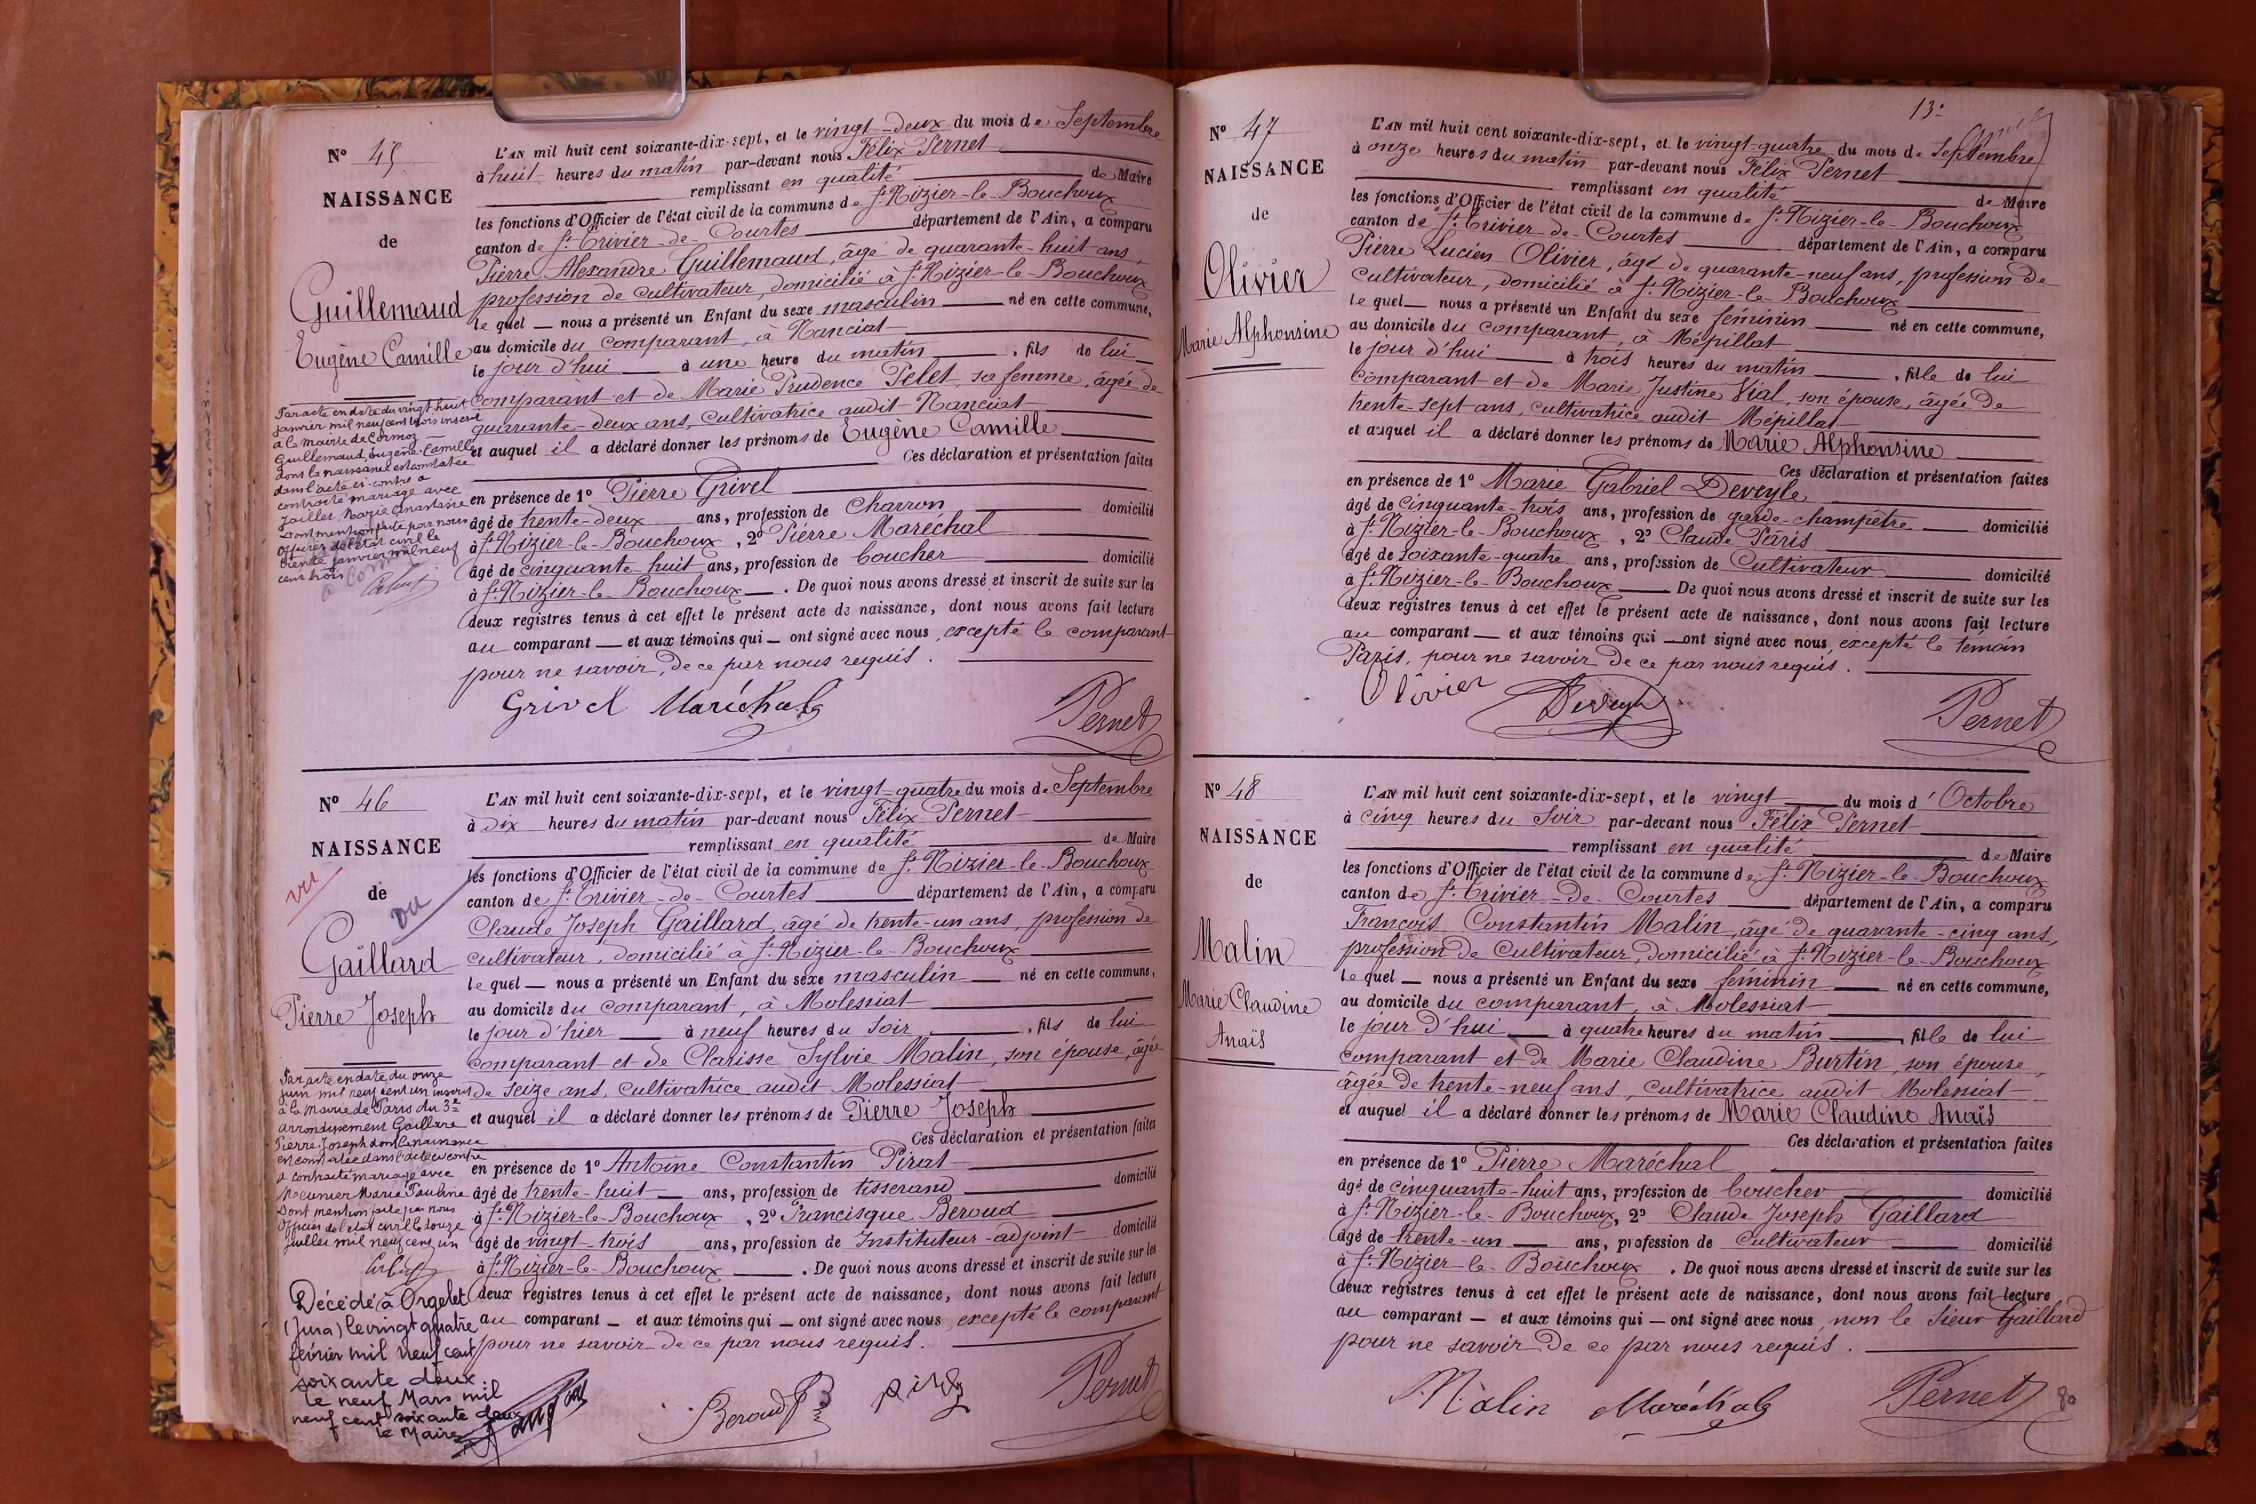 Nº 45
NAISSANCE
de
Guillemaud
Eugène Camille
Par acte en date du vingt huit
janvier mil neuf cent trois inscrit
à la mairie de Cormoz
Guillemaud, Eugène Camille
dont la naissance est constatée
dans l'acte ci-contre a
contracté mariage avec
Jaillet Marie Anastasie
Dont mention faite par nous
Officier de l'état civil le
trente janvier mil neuf
cent trois
L'AN mil huit cent soixante-dix-sept, et le vingt-deux du mois de Septembre
à huit heures du matin par-devant nous Félix Pernet
remplissant en qualité de Maire
les fonctions d'Officier de l'état civil de la commune de St Nizier-le-Bouchoux
canton de St Trivier-de-Courtes département de l'Ain, a comparu
Pierre Alexandre Guillemaud, âgé de quarante-huit ans,
profession de cultivateur, domicilié à St Nizier-le-Bouchoux
le quel nous a présenté un Enfant du sexe masculin né en cette commune,
au domicile du comparant, à Nanciat
le jour d'hui à une heure du matin, fils de lui
comparant et de Marie Prudence Pelet, sa femme, âgée de
quarante-deux ans, cultivatrice audit Nanciat
et auquel il a déclaré donner les prénoms de Eugène Camille
Ces déclaration et présentation faites
en présence de 1º Pierre Grivel
âgé de trente-deux ans, profession de charron domicilié
à St Nizier-le-Bouchoux, 2º Pierre Maréchal
âgé de cinquante-huit ans, profession de boucher domicilié
à St Nizier-le-Bouchoux. De quoi nous avons dressé et inscrit de suite sur les
deux registres tenus à cet effet le présent acte de naissance, dont nous avons fait lecture
au comparant et aux témoins qui ont signé avec nous, excepté le comparant
pour ne savoir, de ce par nous requis.
Grivel Maréchal Pernet
Nº 46
NAISSANCE
de
vu
vu
Gaillard
Pierre Joseph
Par acte en date du onze
juin mil neuf cent un inscrit
à la Mairie de Paris du 3e
arrondissement Gaillard
Pierre Joseph dont la naissance
est constatée dans l'acte ci contre
a contracté mariage avec
Meunier Marie Pauline
Dont mention faite par nous
Officier de l'état civil le douze
juillet mil neuf cent un
Décédé à Orgelet
(Jura) le vingt quatre
février mil neuf cent
soixante deux.
le neuf Mars mil
neuf cent soixante deux
le Maire
L'AN mil huit cent soixante-dix-sept, et le vingt-quatre du mois de Septembre
à dix heures du matin par-devant nous Félix Pernet
remplissant en qualité de Maire
les fonctions d'Officier de l'état civil de la commune de St Nizier-le-Bouchoux
canton de St Trivier-de-Courtes département de l'Ain, a comparu
Claude Joseph Gaillard, âgé de trente-un ans, profession de
cultivateur, domicilié à St Nizier-le-Bouchoux
le quel nous a présenté un Enfant du sexe masculin né en cette commune,
au domicile du comparant, à Molessiat
le jour d'hier à neuf heures du soir, fils de lui
comparant et de Clarisse Sylvie Malin, son épouse, âgée
de seize ans, cultivatrice audit Molessiat
et auquel il a déclaré donner les prénoms de Pierre Joseph
Ces déclaration et présentation faites
en présence de 1º Antoine Constantin Pirat
âgé de trente-huit ans, profession de tisserand domicilié
à St Nizier-le-Bouchoux, 2º Francisque Beroud
âgé de vingt-trois ans, profession de Instituteur-adjoint domicilié
à St Nizier-le-Bouchoux. De quoi nous avons dressé et inscrit de suite sur les
deux registres tenus à cet effet le présent acte de naissance, dont nous avons fait lecture
au comparant et aux témoins qui ont signé avec nous, excepté le comparant
pour ne savoir de ce par nous requis.
Beroud Pernet
13.
Nº 47
NAISSANCE
de
Olivier
Marie Alphonsine
L'AN mil huit cent soixante-dix-sept, et le vingt-quatre du mois de Septembre
à onze heures du matin par-devant nous Félix Pernet
remplissant en qualité de Maire
les fonctions d'Officier de l'état civil de la commune de St Nizier-le-Bouchoux
canton de St Trivier-de-Courtes département de l'Ain, a comparu
Pierre Lucien Olivier, âgé de quarante-neuf ans, profession de
cultivateur, domicilié à St Nizier-le-Bouchoux
le quel nous a présenté un Enfant du sexe féminin né en cette commune,
au domicile du comparant, à Mépillat
le jour d'hui à trois heures du matin, fille de lui
comparant et de Marie Justine Vial, son épouse, âgée de
trente-sept ans, cultivatrice audit Mépillat
et auquel il a déclaré donner les prénoms de Marie Alphonsine
Ces déclaration et présentation faites
en présence de 1º Marie Gabriel Deveyle
âgé de cinquante-trois ans, profession de garde-champêtre domicilié
à St Nizier-le-Bouchoux, 2º Claude Paris
âgé de soixante-quatre ans, profession de Cultivateur domicilié
à St Nizier-le-Bouchoux De quoi nous avons dressé et inscrit de suite sur les
deux registres tenus à cet effet le présent acte de naissance, dont nous avons fait lecture
au comparant et aux témoins qui ont signé avec nous, excepté le témoin
Paris, pour ne savoir de ce par nous requis.
Olivier Deveyle Pernet
Nº 48
NAISSANCE
de
Malin
Marie Claudine
Anaïs
L'AN mil huit cent soixante-dix-sept, et le vingt du mois d'Octobre
à cinq heures du Soir par-devant nous Félix Pernet
remplissant en qualité de Maire
les fonctions d'Officier de l'état civil de la commune de St Nizier-le-Bouchoux
canton de St Trivier-de-Courtes département de l'Ain, a comparu
François Constantin Malin, âgé de quarante-cinq ans,
profession de Cultivateur, domicilié à St Nizier-le-Bouchoux
le quel nous a présenté un Enfant du sexe féminin né en cette commune,
au domicile du comparant, à Molessiat
le jour d'hui à quatre heures du matin, fille de lui
comparant et de Marie Claudine Burtin, son épouse,
âgée de trente-neuf ans, cultivatrice audit Molessiat
et auquel il a déclaré donner les prénoms de Marie Claudine Anaïs
Ces déclaration et présentation faites
en présence de 1º Pierre Maréchal
âgé de cinquante-huit ans, profession de boucher domicilié
à St Nizier-le-Bouchoux, 2º Claude Joseph Gaillard
âgé de trente-un ans, profession de cultivateur domicilié
à St Nizier-le-Bouchoux. De quoi nous avons dressé et inscrit de suite sur les
deux registres tenus à cet effet le présent acte de naissance, dont nous avons fait lecture
au comparant et aux témoins qui ont signé avec nous, non le Sieur Gaillard
pour ne savoir de ce par nous requis.
Malin Maréchal Pernet
80